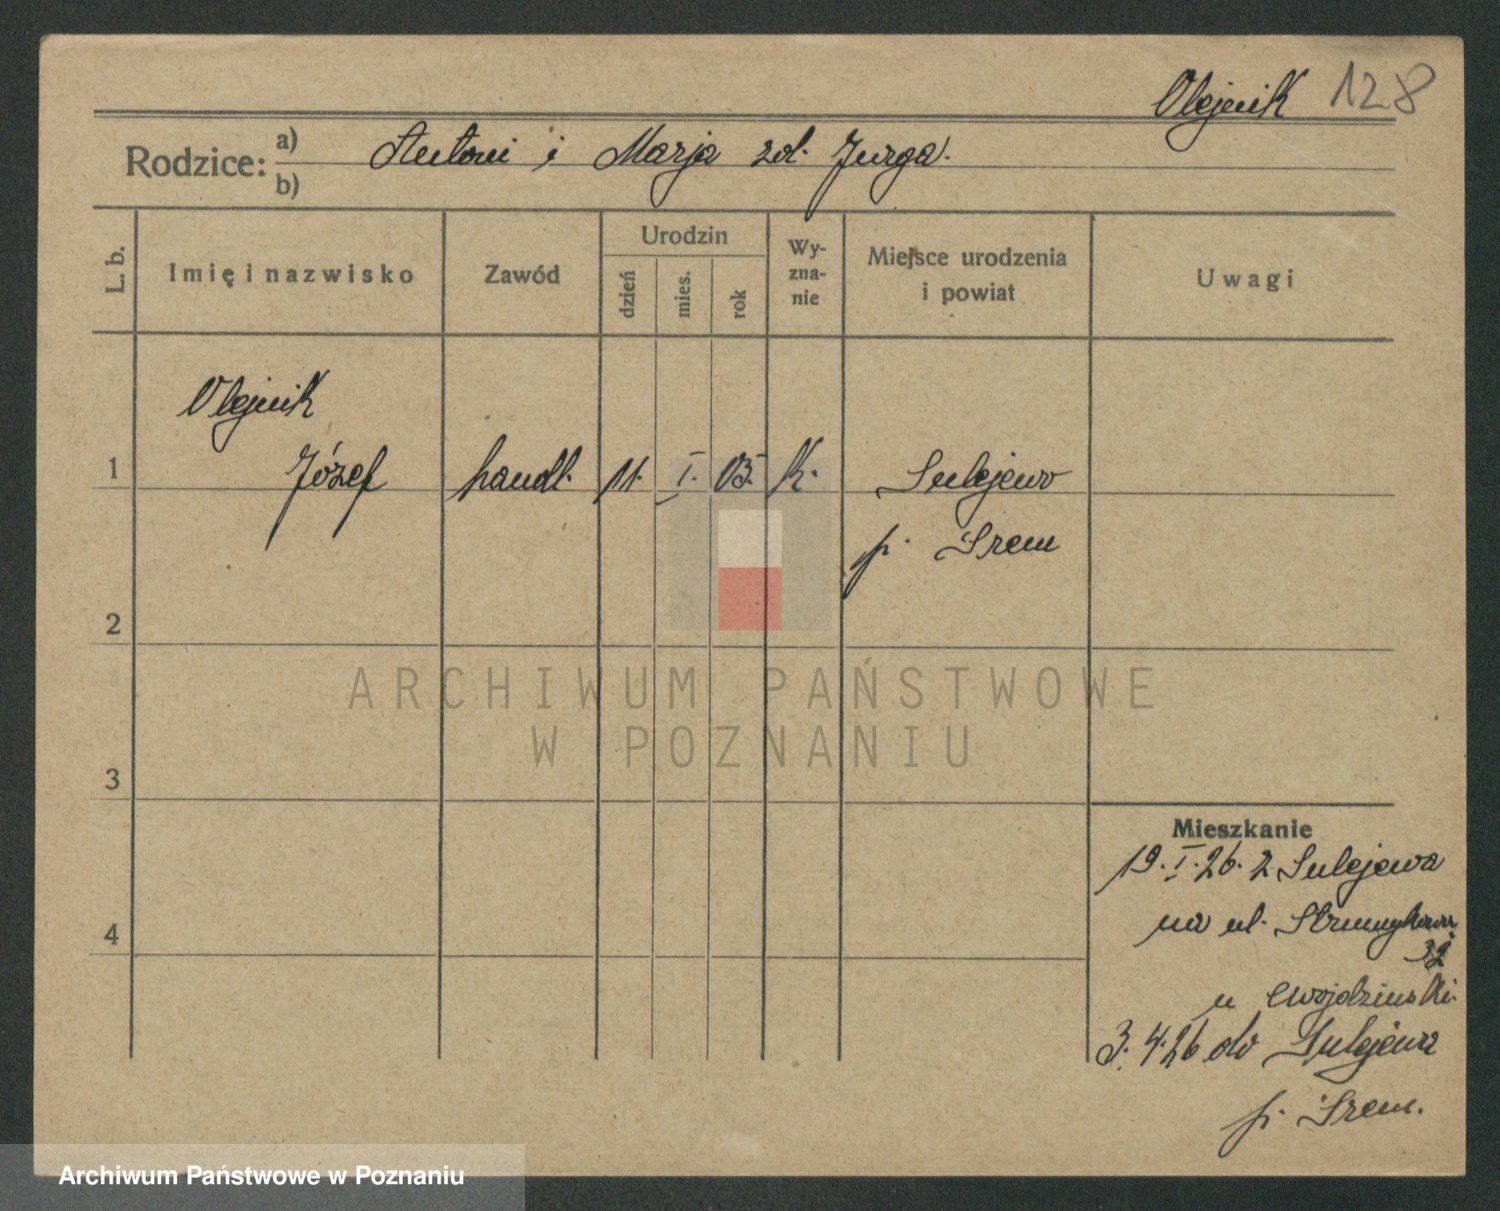 Olejnik 128
Rodzice: a) Antoni i Marja zd. Jurga.
b)
L. b.
Imię i nazwisko
Zawód
Urodzin
dzień
mies.
rok
Wy-
zna-
nie
Miejsce urodzenia
i powiat
Uwagi
Olejnik
1 Józef handl. 11. I. 05. K. Sulejewo
p. Srem
2
ARCHIWUM PAŃSTWOWE
W POZNANIU
3
Mieszkanie
19. I. 26. z Sulejewa
4
na ul. Strumykowa
32
u
3. 4. 26 do Sulejewa
p. Srem.
Archiwum Państwowe w Poznaniu